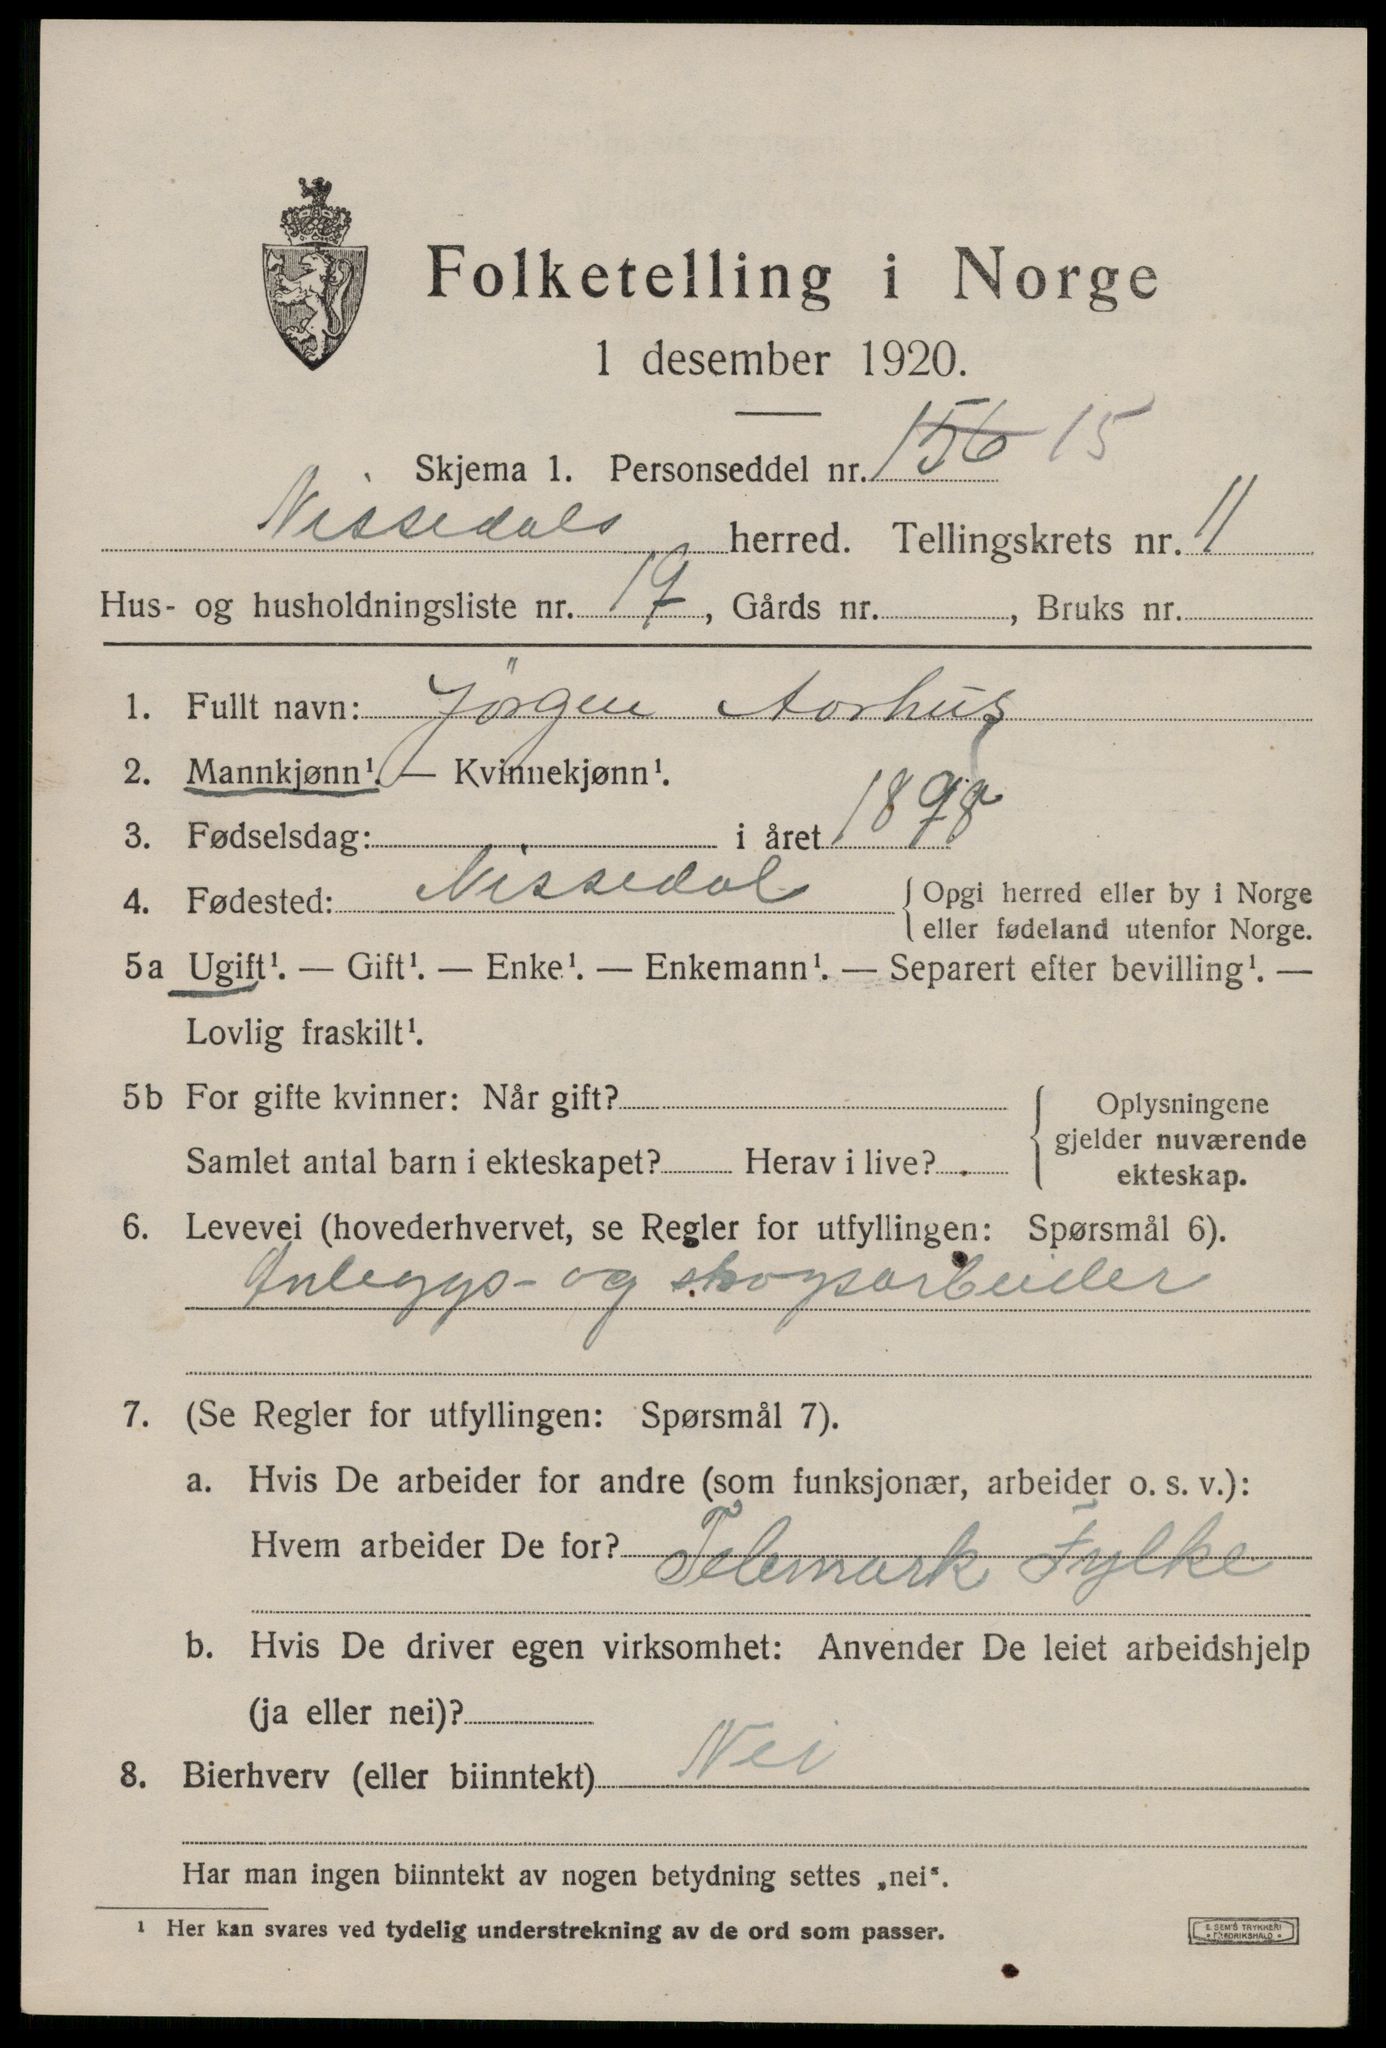 Folketelling i Norge
1 desember 1920.
Skjema 1. Personseddel nr. 156 15
Nissedals herred. Tellingskrets nr. 11
Hus- og husholdningsliste nr. 19, Gårds nr. , Bruks nr.
1. Fullt navn: Jörgen Aorhus
2. Mannkjønn¹. — Kvinnekjønn¹.
3. Fødselsdag: i året 1898
4. Fødested: Nissedal { Opgi herred eller by i Norge
eller fødeland utenfor Norge.
5a Ugift¹. — Gift¹. — Enke¹. — Enkemann¹. — Separert efter bevilling¹. —
Lovlig fraskilt¹.
5b For gifte kvinner: Når gift? { Oplysningene
gjelder nuværende
Samlet antal barn i ekteskapet? Herav i live?
ekteskap.
6. Levevei (hovederhvervet, se Regler for utfyllingen: Spørsmål 6).
Anleggs- og skogsarbeider
7. (Se Regler for utfyllingen: Spørsmål 7).
a. Hvis De arbeider for andre (som funksjonær, arbeider o. s. v.):
Hvem arbeider De for? Telemark Fylke
b. Hvis De driver egen virksomhet: Anvender De leiet arbeidshjelp
(ja eller nei)?
8. Bierhverv (eller biinntekt) Nei
Har man ingen biinntekt av nogen betydning settes „nei“.
¹ Her kan svares ved tydelig understrekning av de ord som passer.
E. SEM'S TRYKKERI
• FREDRIKSHALD •